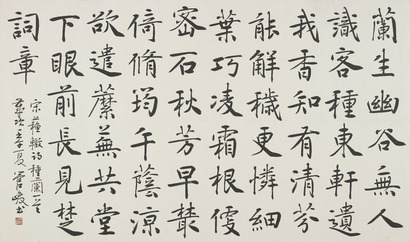 蘭生幽谷無人
識客種東軒遺
我香知有清芬
能解穢更憐細
葉巧凌霜根便
密石秋芳早叢
倚脩筠午蔭涼
欲遣蘼蕪共堂
下眼前長見楚
詞章
宋蘇轍詩種蘭一首
歲次夏書